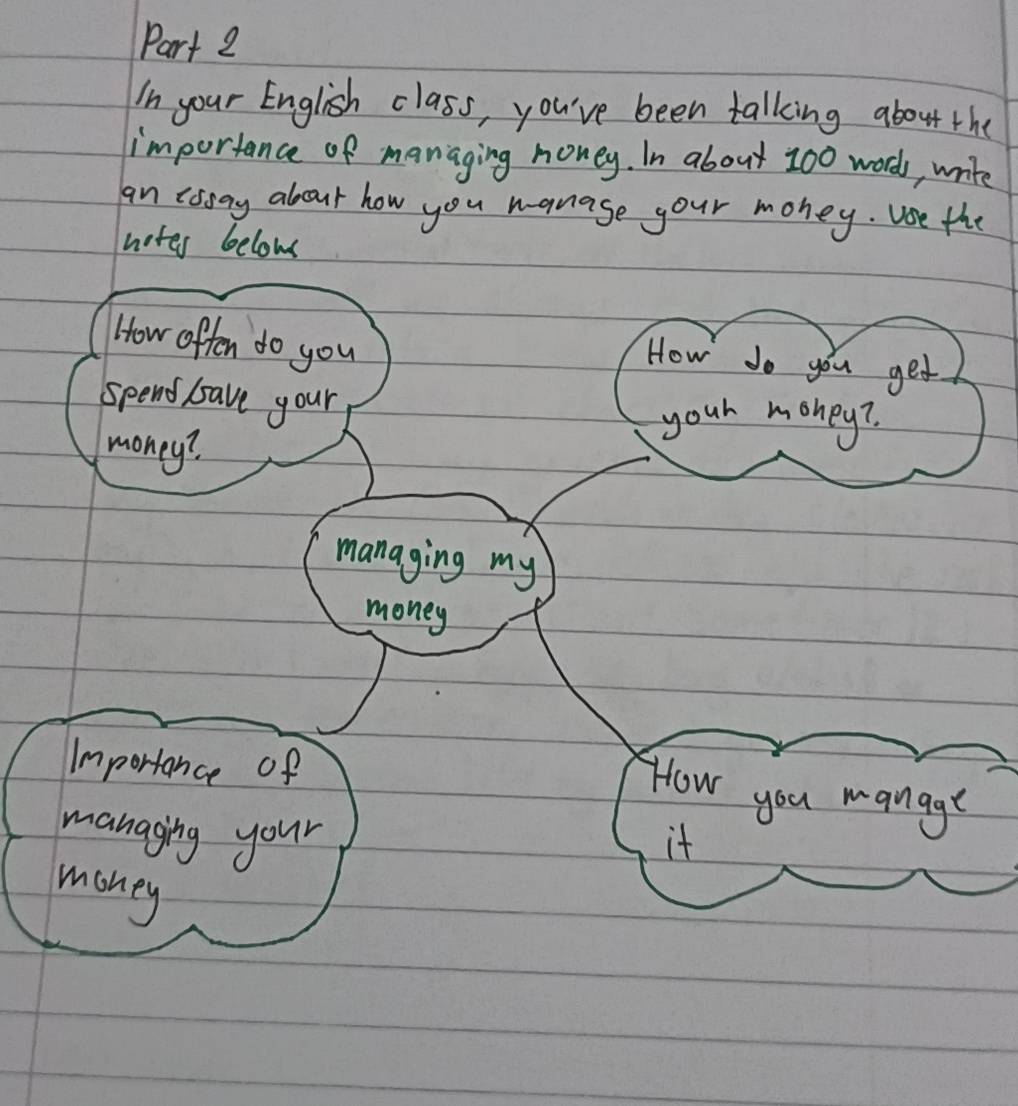 Part 2
In your English class, you've been talking about the
importance of managing money. In about 100 words, write
an essay about how you manage your money. Use the
notes below
How often do you
spend/save your
money?
How do you get
your money?
managing my
money
Importance of
managing your
money
How you manage
it